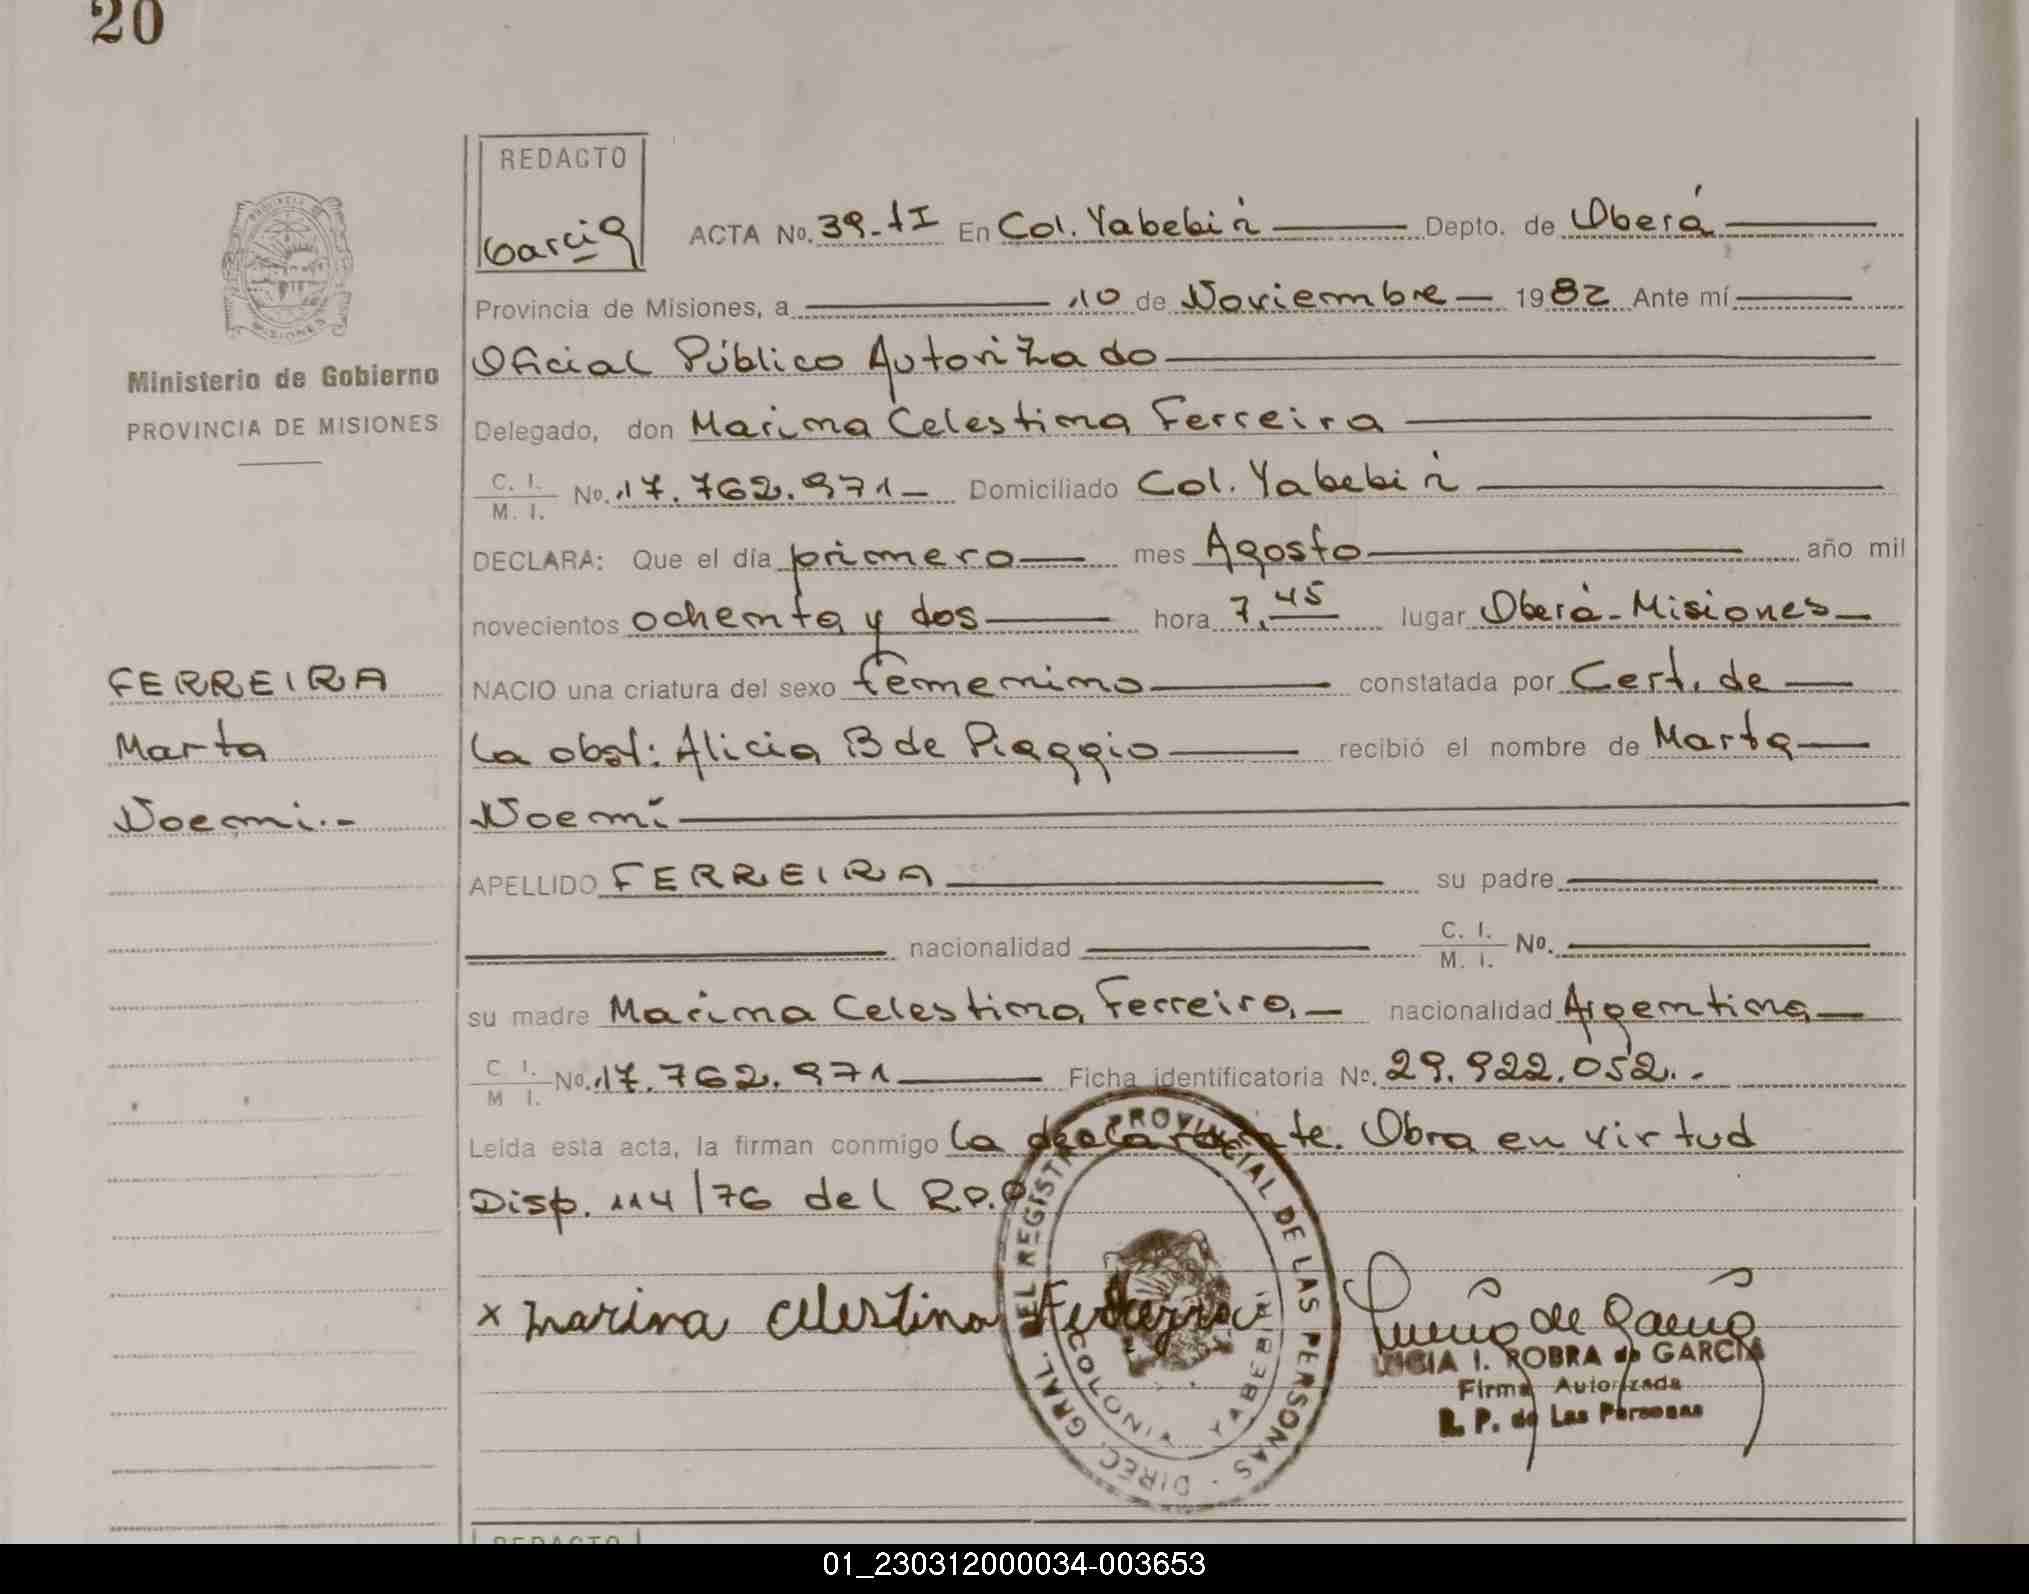 20
REDACTO
García
ACTA No. 39-tI En Col. Yabebirí Depto. de Oberá
Provincia de Misiones, a 10 de Noviembre 1982 Ante mí
Oficial Público Autorizado
Ministerio de Gobierno
PROVINCIA DE MISIONES
Delegado, don Marina Celestina Ferreira
C. I.
M. I. No. 17.762.971- Domiciliado Col. Yabebirí
DECLARA: Que el día primero mes Agosto año mil
novecientos ochenta y dos hora 7,45 lugar Oberá-Misiones
FERREIRA
Marta
Noemi.-
NACIO una criatura del sexo femenino constatada por Cert. de
la obst: Alicia B de Piaggio recibió el nombre de Marta
Noemí
APELLIDO FERREIRA su padre
nacionalidad C. I. M. I. No.
su madre Marina Celestina Ferreira nacionalidad Argentina
C. I.
M I. No. 17.762.971 Ficha identificatoria No. 29.922.052.-
Leída esta acta, la firman conmigo la declarante. Obra en virtud
Disp. 114/76 del R.P.P
x Marina Celestina Ferreira
DIREC. GRAL. DEL REGISTRO PROVINCIAL DE LAS PERSONAS
COLONIA YABEBIRI
PROVINCIA DE
MISIONES
LUCIA I. ROBRA de GARCIA
Firma Autorizada
R. P. de Las Personas
REDACTO
01_230312000034-003653